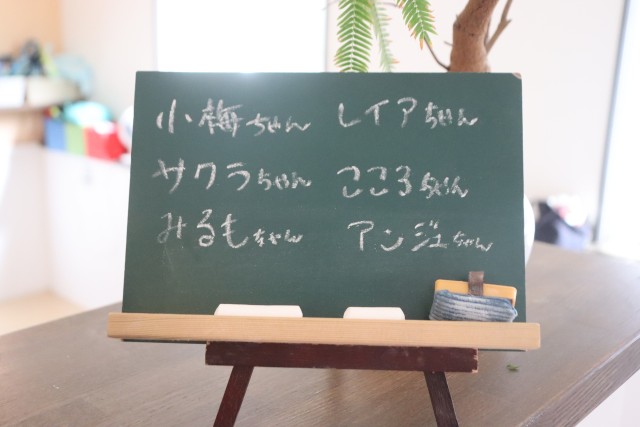 小梅ちゃん レイアちゃん
サクラちゃん こころちゃん
みるもちゃん アンジュちゃん